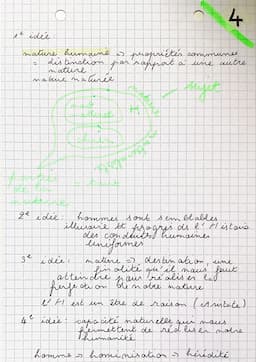 4
1e idée
nature humaine => propriétés communes
= distinction par rapport à une autre
nature
nature naturée
sujet
2e idée : hommes sont semblables
illusoire et progrès de l'H
des conduites humaines
uniformes
3e idée : nature => destination, une
finalité qu'il nous faut
atteindre pour réaliser la
perfection de notre nature
L'H est un être de raison (Aristote)
4e idée : capacité naturelle qui nous
permettent de réaliser notre
humanité
homme -> hominisation -> hérédité